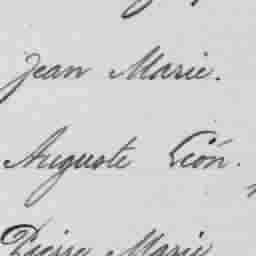 Jean Marie.
Auguste Léon.
Pierre Marie